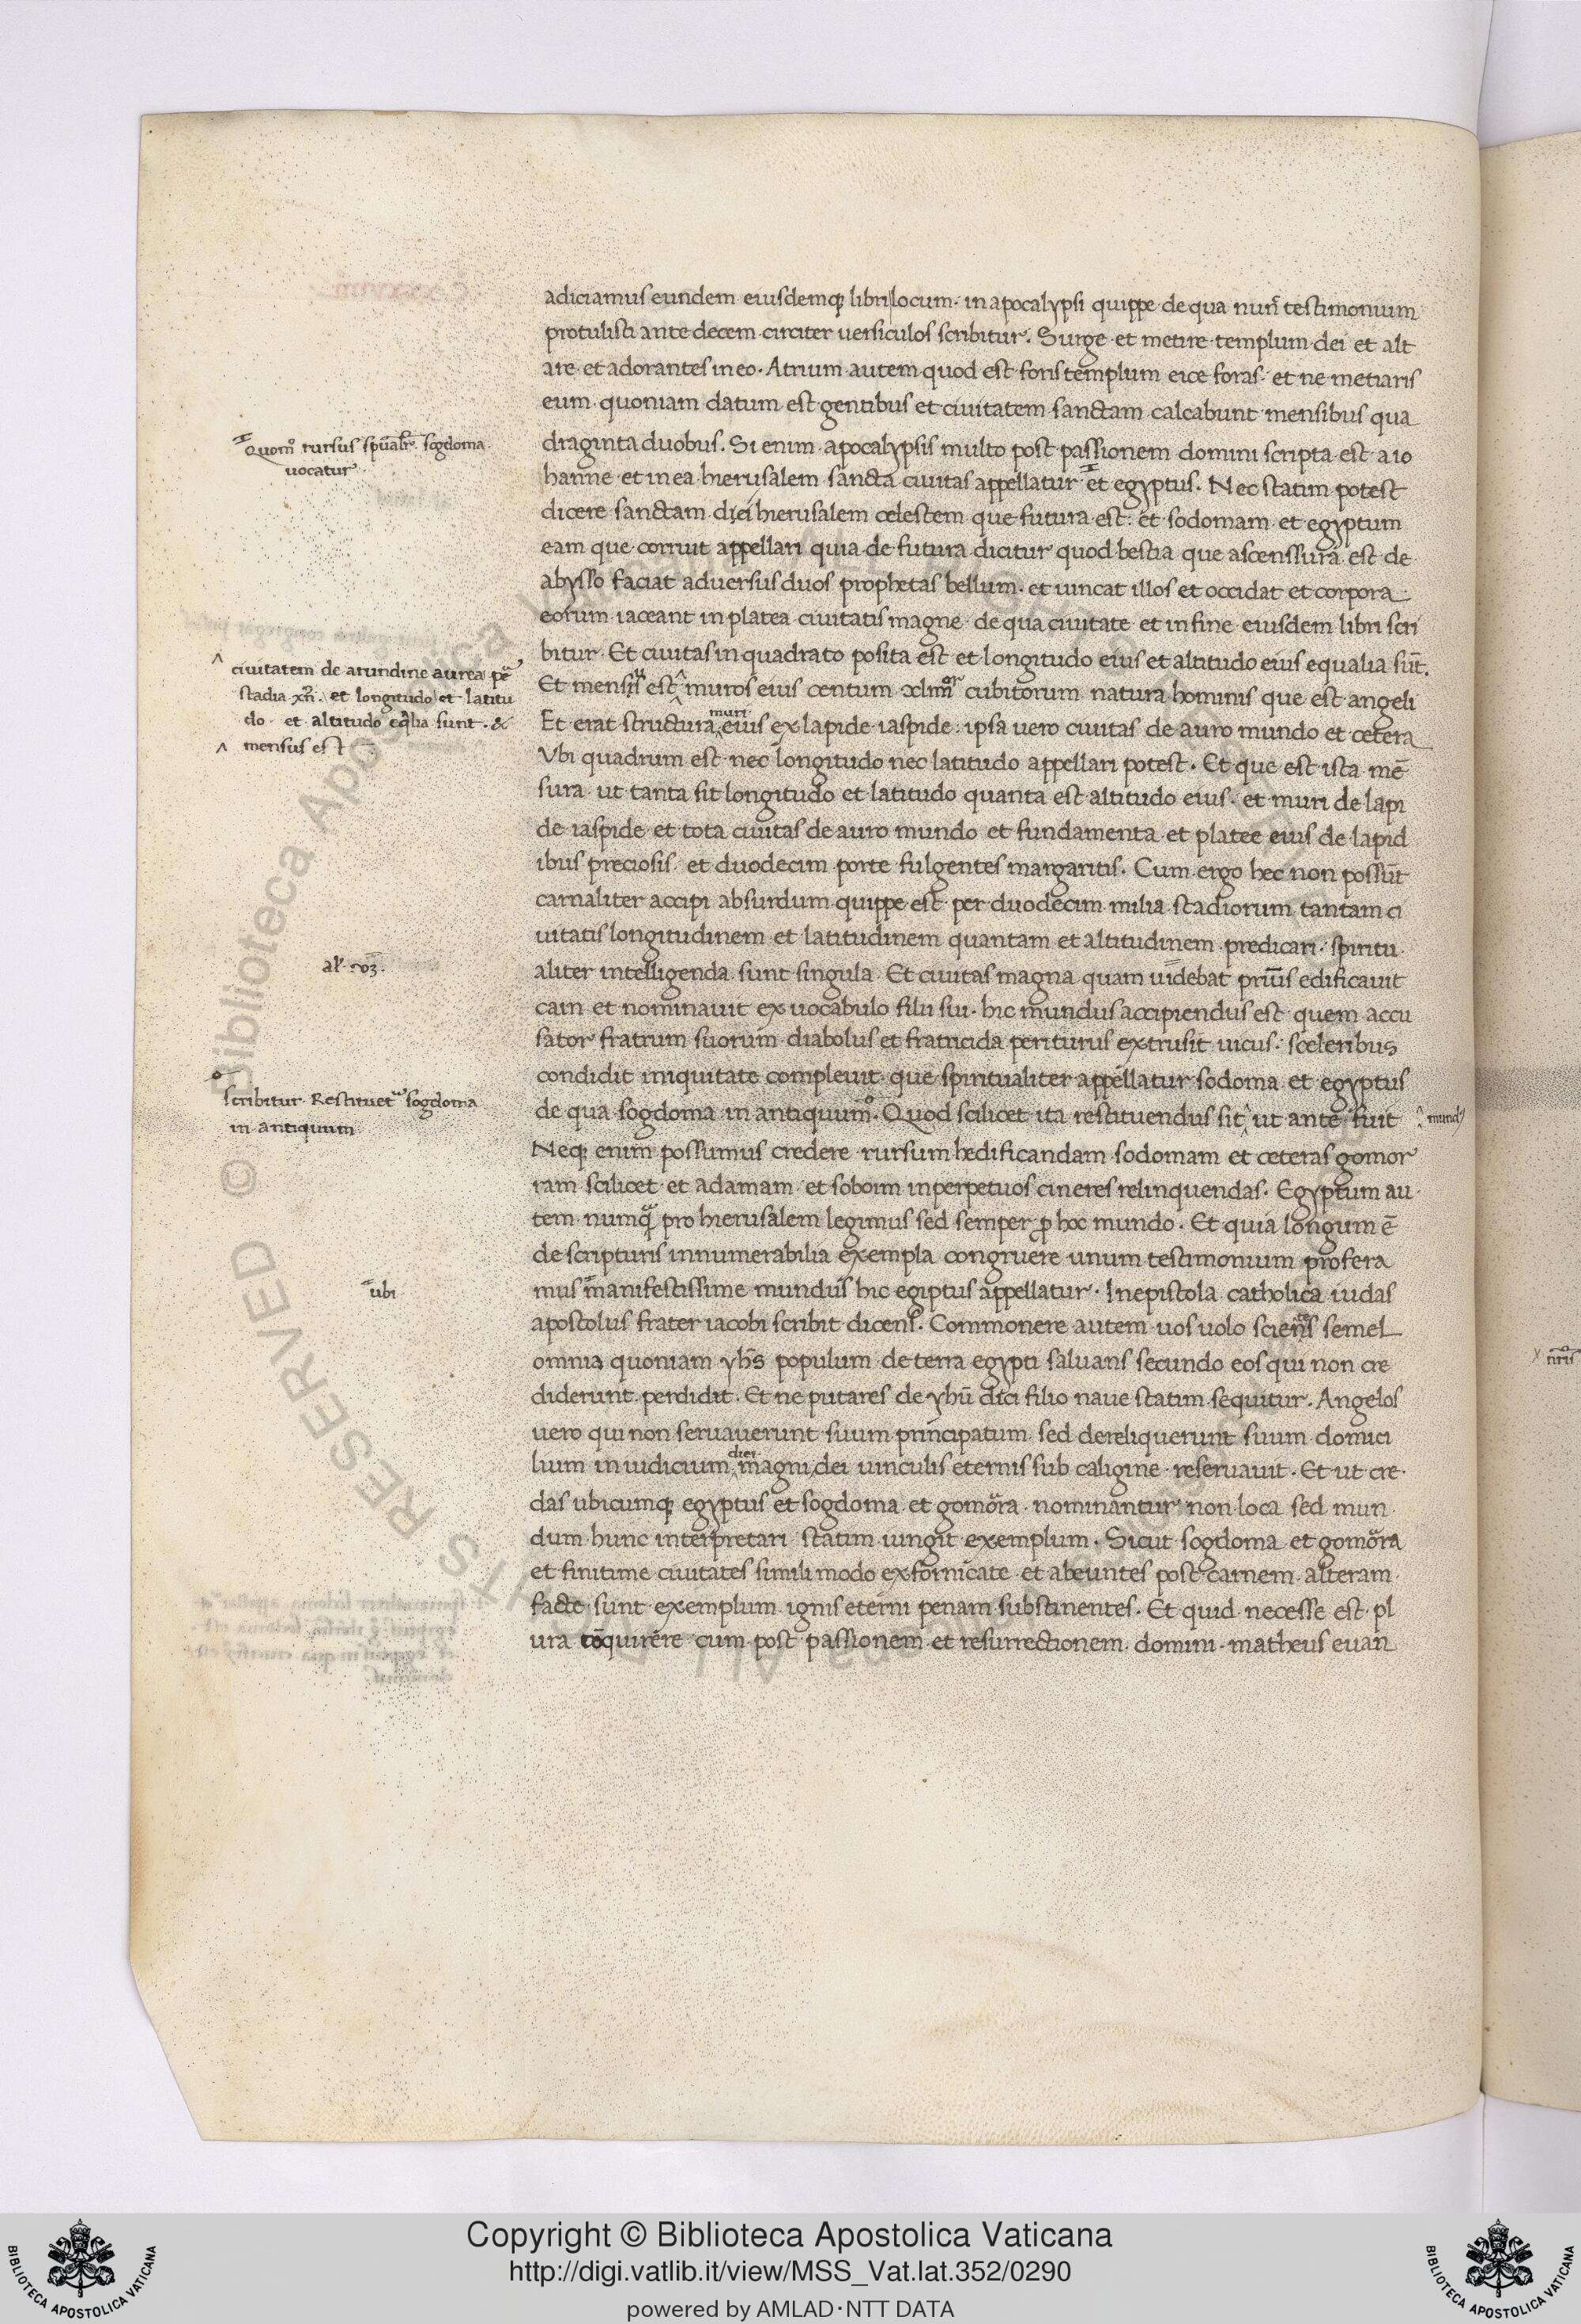 adiciamus eundem eiusdemq̨ libri locum. in apocalypsi quippe de qua nunc̄ testimonium
protulisti ante decem circiter uersiculos scribitur. Surge et metire templum dei et alt
are et adorantes in eo. Atrium autem quod est foris templum eice foras. et ne metiaris
eum quoniam datum est gentibus et ciuitatem sanctam calcabunt mensibus qua
draginta duobus. Si enim apocalypsis multo post passionem domini scripta est a io
hanne et in ea hierusalem sancta ciuitas appellatur et egyptus. Nec statim potest
dicere sanctam dici hierusalem celestem que futura est. et sodomam et egyptum
eam que corruit appellari quia de futura dicitur quod bestia que ascenssura est de
abysso faciat aduersus duos prophetas bellum. et uincat illos et occidat et corpora
eorum iaceant in platea ciuitatis magne de qua ciuitate et in fine eiusdem libri scri
bitur. Et ciuitas in quadrato posita est et longitudo eius et altitudo eius equalia sūt.
Et mensus est ^ muros eius centum xliiiior cubitorum natura hominis que est angeli
Et erat structura muri eius ex lapide iaspide. ipsa uero ciuitas de auro mundo et cetera
Vbi quadrum est nec longitudo nec latitudo appellari potest. Et que est ista mē
sura ut tanta sit longitudo et latitudo quanta est altitudo eius. et muri de lapi
de iaspide et tota ciuitas de auro mundo et fundamenta et platee eius de lapid
ibus preciosis et duodecim porte fulgentes margaritis. Cum ergo hec non possūt
carnaliter accipi absurdum quippe est per duodecim milia stadiorum tantam ci
uitatis longitudinem et latitudinem quantam et altitudinem predicari. spiritu
aliter intelligenda sunt singula Et ciuitas magna quam uidebat prius edificauit
cain et nominauit ex uocabulo filii sui. hic mundus accipiendus est quem accu
sator fratrum suorum diabolus et fratricida periturus extrusit uicus. sceleribus
condidit iniquitate compleuit que spiritualiter appellatur sodoma et egyptus
de qua sogdoma in antiquum. Quod scilicet ita restituendus sit ^ ut ante fuit
Neq̨ enim possumus credere rursum hedificandam sodomam et ceteras gomor
ram scilicet et adamam et soboim in perpetuos cineres relinquendas. Egyptum au
tem numq̄ pro hierusalem legimus sed semper ꝓ hoc mundo. Et quia longum ē
de scripturis innumerabilia exempla congruere unum testimonium profera
mus manifestissime mundus hic egiptus appellatur. In epistola catholica iudas
apostolus frater iacobi scribit dicens. Commonere autem uos uolo scientes semel
omnia quoniam yhs̄ populum de terra egypti saluans secundo eos qui non cre
diderunt perdidit. Et ne putares de yhū dici filio naue statim sequitur. Angelos
uero qui non seruauerunt suum principatum sed dereliquerunt suum domici
lium in iudicium diei magni dei uinculis eternis sub caligine reseruauit. Et ut cre
das ubicumq̨ egyptus et sogdoma et gomora nominantur non loca sed mun
dum hunc interpretari statim iungit exemplum. Sicut sogdoma et gomora
et finitime ciuitates simili modo exfornicate et abeuntes post carnem alteram
facte sunt exemplum ignis eterni penam substinentes. Et quid necesse est pl
ura cōquirere cum post passionem et resurrectionem domini matheus euan
Quomō rursus spūalr̄ sogdoma
uocatur
ciuitatem de arundine aurea pe
stadia xii. et longitudo et latitu
do et altitudo eqlia sunt. &
mensus est
scribitur. Restituet sogdoma
in antiquum
ubi
mund
BIBLIOTECA APOSTOLICA VATICANA
Copyright © Biblioteca Apostolica Vaticana
http://digi.vatlib.it/view/MSS_Vat.lat.352/0290
powered by AMLAD·NTT DATA
BIBLIOTECA APOSTOLICA VATICANA